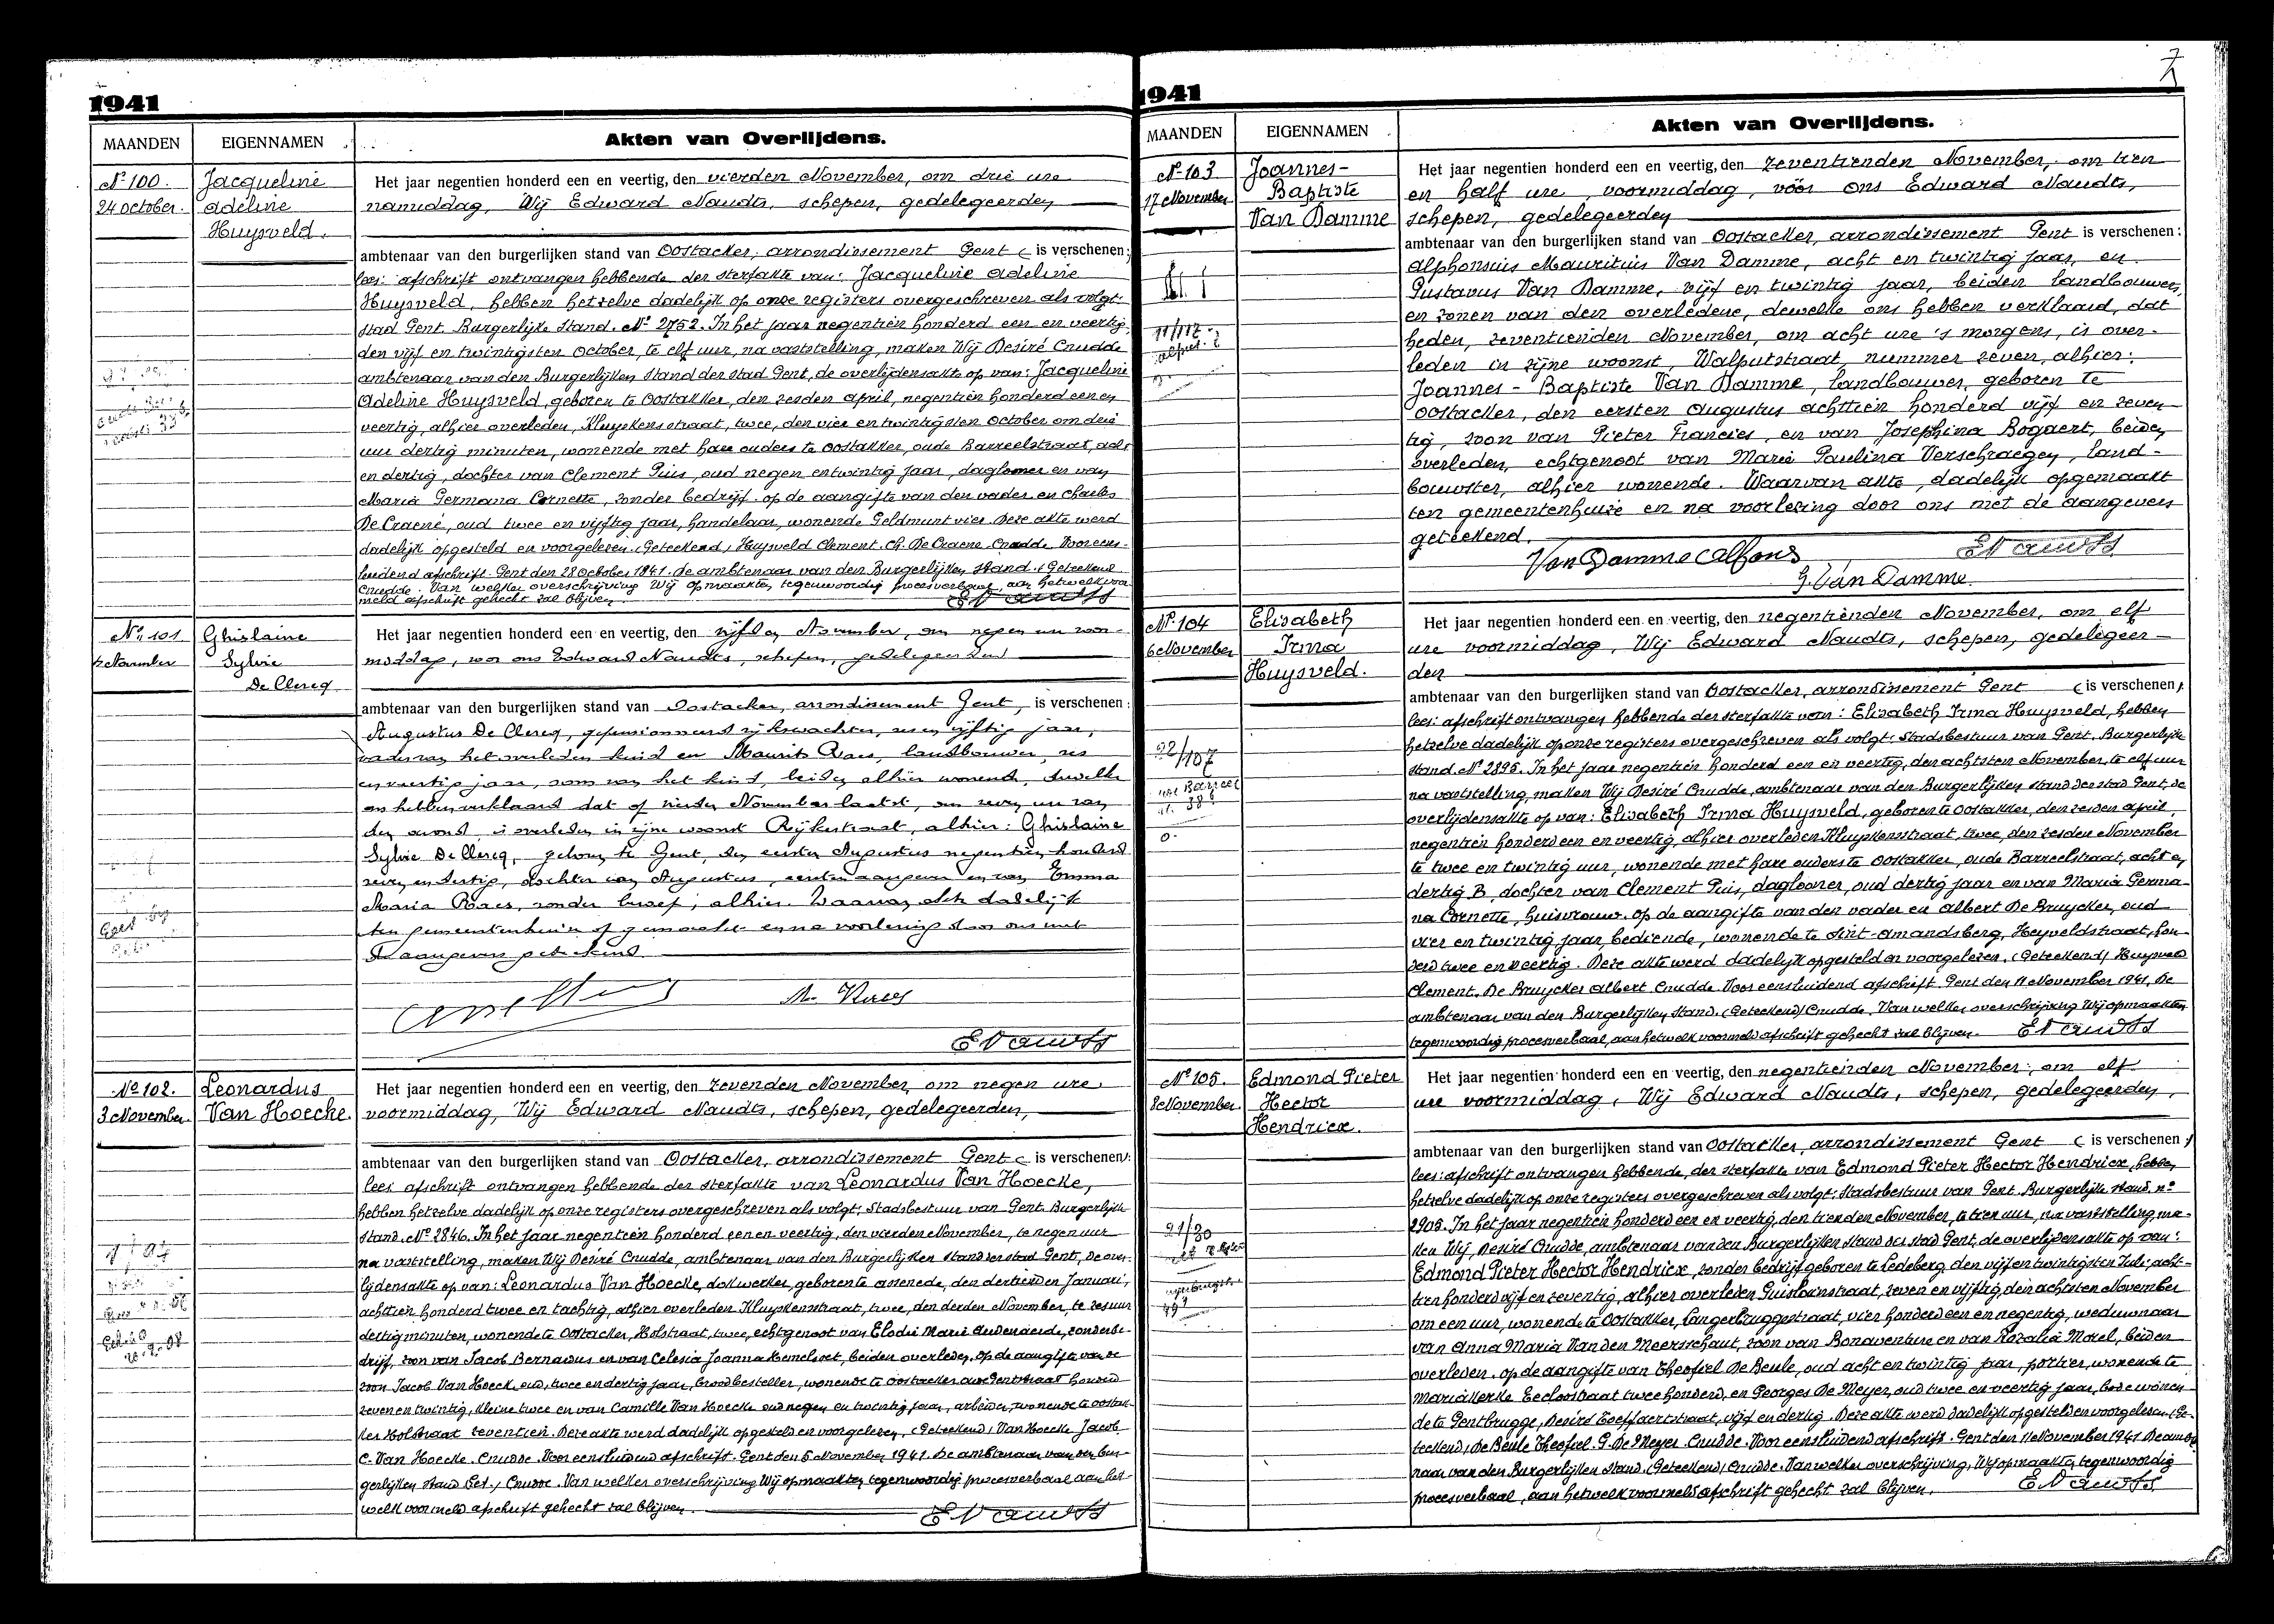 1941
MAANDEN
EIGENNAMEN
Akten van Overlijdens.
Nº 100.
24 October.
Jacqueline
Adeline
Huysveld.
Het jaar negentien honderd een en veertig, den vierden November, om drie ure
namiddag, Wij Edward Naudts, schepen, gedelegeerden
ambtenaar van den burgerlijken stand van Oostacker, arrondissement Gent ( is verschenen;
lees: afschrift ontvangen hebbende der sterfakte van: Jacqueline Adeline
Huysveld, hebben hetzelve dadelijk op onze registers overgeschreven als volgt:
stad Gent. Burgerlijke Stand. Nº 2752. In het jaar negentien honderd een en veertig,
den vijf en twintigsten October, te elf uur, na vaststelling, maken Wij Desiré Cnudde
ambtenaar van den Burgerlijken Stand der stad Gent, de overlijdensakte op van: Jacqueline
Adeline Huysveld, geboren te Oostakker, den zesden April, negentien honderd een en
veertig, alhier overleden, Kluyskensstraat, twee, den vier en twintigsten October om drie
uur dertig minuten, wonende met hare ouders te Oostakker, oude Barreelstraat, acht
en dertig, dochter van Clement Pius, oud negen en twintig jaar, daglooner en van
Maria Germana Cornette, zonder bedrijf. op de aangifte van den vader en Charles
De Craene, oud twee en vijftig jaar, handelaar, wonende Geldmunt vier. Deze akte werd
dadelijk opgesteld en voorgelezen. (Geteekend) Huysveld Clement. Ch. De Craene. Cnudde. Voor eens-
luidend afschrift. Gent den 28 October 1941. De ambtenaar van den Burgerlijken Stand. (Geteekend
Cnudde. Van welker overschrijving Wij opmaakten tegenwoordig procesverbaal, aan hetwelk voor
meld afschrift gehecht zal blijven.
E Naudts
Nº 101
4 November
Ghislaine
Sylvie
De Clercq
Het jaar negentien honderd een en veertig, den vijfden November, om negen ure voor-
middag, voor ons Edward Naudts, schepen, gedelegeerden
ambtenaar van den burgerlijken stand van Oostacker, arrondissement Gent, is verschenen:
Augustus De Clercq, gepensionneerd rijkswachter, zes en vijftig jaar,
vader van het overleden kind en Maurits Raes, landbouwer, zes
en veertig jaar, oom van het kind, beiden alhier wonend, dewelke
ons hebben verklaard dat op vierden November laatst, om zeven ure van
den avond is overleden in zijne woonst Rijkestraat, alhier: Ghislaine
Sylvie De Clercq, geboren te Gent, den eersten Augustus negentien honderd
zeven en dertig, dochter van Augustus, eersten aangever en van Emma
Maria Raes, zonder beroep, alhier. Waarvan akte dadelijk
ten gemeentenhuize opgemaakt en na voorlezing door ons met
de aangevers geteekend.
M. Raes
E Naudts
Nº 102.
3 November.
Leonardus
Van Hoecke.
Het jaar negentien honderd een en veertig, den zevenden November, om negen ure
voormiddag, Wij Edward Naudts, schepen, gedelegeerden,
ambtenaar van den burgerlijken stand van Oostacker, arrondissement Gent ( is verschenen):
lees afschrift ontvangen hebbende der sterfakte van Leonardus Van Hoecke,
hebben hetzelve dadelijk op onze registers overgeschreven als volgt: Stadsbestuur van Gent. Burgerlijke
stand. Nº 2846. In het jaar negentien honderd een en veertig, den vierden November, te negen uur
na vaststelling, maken Wij Desiré Cnudde, ambtenaar van den Burgerlijken Stand der stad Gent, de over-
lijdensakte op van: Leonardus Van Hoecke, dokwerker, geboren te Assenede, den dertienden Januari,
achttien honderd twee en tachtig, alhier overleden Kluyskensstraat, twee, den derden November, te zes uur
dertig minuten, wonende te Oostacker, Holstraat, twee, echtgenoot van Elodie Marie Audenaerde, zonder be-
drijf, zoon van Jacob Bernardus en van Celesia Joanna Kemelvoet, beiden overleden. Op de aangifte van de
zoon Jacob Van Hoecke oud, twee en dertig jaar, broodbesteller, wonende te Oostacker oude Gentstraat honderd
zeven en twintig, kleine twee en van Camille Van Hoecke oud negen en twintig jaar, arbeider, wonende te Oostac-
ker Holstraat zeventien. Deze akte werd dadelijk opgesteld en voorgelezen. (Geteekend) Van Hoecke Jacob
C. Van Hoecke. Cnudde. Voor eensluidend afschrift. Gent den 5 November 1941. De ambtenaar van den bur-
gerlijken stand Get.) Cnudde. Van welker overschrijving Wij opmaakten tegenwoordig procesverbaal aan het-
welk voormeld afschrift gehecht zal blijven.
E Naudts
1941
MAANDEN
EIGENNAMEN
Akten van Overlijdens.
Nº 103
17 November
Joannes-
Baptiste
Van Damme
Het jaar negentien honderd een en veertig, den zeventienden November, om tien
en half ure, voormiddag, vóór ons Edward Naudts,
schepen, gedelegeerden
ambtenaar van den burgerlijken stand van Oostacker, arrondissement Gent is verschenen:
Alphonsius Mauritius Van Damme, acht en twintig jaar, en
Gustavus Van Damme, vijf en twintig jaar, beiden landbouwers,
en zonen van den overledene, dewelke ons hebben verklaard, dat
heden, zeventienden November, om acht ure 's morgens, is over-
leden in zijne woonst, Walputstraat, nummer zeven, alhier:
Joannes-Baptiste Van Damme, landbouwer, geboren te
Oostacker, den eersten Augustus achttien honderd vijf en zeven-
tig, zoon van Pieter Francies, en van Josephina Bogaert, beiden
overleden, echtgenoot van Marie Paulina Verschraegen, land-
bouwster, alhier wonende. Waarvan akte, dadelijk opgemaakt
ten gemeentenhuize en na voorlezing door ons met de aangevers
geteekend.
Van Damme Alfons
E Naudts
G. Van Damme.
Nº 104
6 November
Elisabeth
Irma
Huysveld.
22/107
Het jaar negentien honderd een en veertig, den negentienden November, om elf
ure voormiddag, Wij Edward Naudts, schepen, gedelegeer-
den
ambtenaar van den burgerlijken stand van Oostacker, arrondissement Gent ( is verschenen).
lees: afschrift ontvangen hebbende der sterfakte van: Elisabeth Irma Huysveld, hebben
hetzelve dadelijk op onze registers overgeschreven als volgt: Stadsbestuur van Gent. Burgerlijke
stand. Nº 2895. In het jaar negentien honderd een en veertig, den achtsten November, te elf uur
na vaststelling, maken Wij Desiré Cnudde, ambtenaar van den Burgerlijken stand der stad Gent, de
overlijdensakte op van: Elisabeth Irma Huysveld, geboren te Oostakker, den zesden april,
negentien honderd een en veertig, alhier overleden Kluyskensstraat, twee, den zesden November
te twee en twintig uur, wonende met hare ouders te Oostakker, oude Barreelstraat, acht en
dertig B, dochter van Clement Pius, daglooner, oud dertig jaar en van Maria Germa-
na Cornette, huisvrouw. op de aangifte van den vader en Albert De Bruycker, oud
vier en twintig jaar, bediende, wonende te Sint-Amandsberg, Heyveldstraat, hon-
derd twee en veertig. Deze akte werd dadelijk opgesteld en voorgelezen. (Geteekend) Huysveld
Clement. De Bruycker Albert Cnudde. Voor eensluidend afschrift. Gent den 11 November 1941. De
ambtenaar van den Burgerlijken Stand. (Geteekend) Cnudde. Van welker overschrijving Wij opmaakten
tegenwoordig procesverbaal, aan hetwelk voormeld afschrift gehecht zal blijven. E Naudts
Nº 105.
8 November.
Edmond Pieter
Hector
Hendrickx.
21/30
Het jaar negentien honderd een en veertig, den negentienden November, om elf
ure voormiddag, Wij Edward Naudts, schepen, gedelegeerden,
ambtenaar van den burgerlijken stand van Oostacker, arrondissement Gent ( is verschenen)
lees: afschrift ontvangen hebbende, der sterfakte van Edmond Pieter Hector Hendrickx, hebben
hetzelve dadelijk op onze registers overgeschreven als volgt: Stadsbestuur van Gent. Burgerlijke stand. nº
2905. In het jaar negentien honderd een en veertig, den tienden November, te tien uur, na vaststelling, ma-
ken Wij Desiré Cnudde, ambtenaar van den Burgerlijken Stand der stad Gent, de overlijdensakte op van:
Edmond Pieter Hector Hendrickx, zonder bedrijf geboren te Ledeberg den vijf en twintigsten Juli acht-
tien honderd vijf en zeventig, alhier overleden Guislainstraat, zeven en vijftig, den achtsten November
om een uur, wonende te Oostakker, Langerbruggestraat, vier honderd een en negentig, weduwnaar
van Anna Maria Van den Meersschaut, zoon van Bonaventure en van Rozalia Morel, beiden
overleden. op de aangifte van Theofiel De Beule, oud acht en twintig jaar, portier, wonende te
Mariakerke Eeclostraat twee honderd, en Georges De Meyer, oud twee en veertig jaar, bode wonen-
de te Gentbrugge, Desiré Toeffaertstraat, vijf en dertig. Deze akte werd dadelijk opgesteld en voorgelezen. (Ge-
teekend) De Beule Theofiel. G. De Meyer. Cnudde. Voor eensluidend afschrift. Gent den 11 November 1941 De ambte
naar van den Burgerlijken Stand. (Geteekend) Cnudde. Van welker overschrijving, Wij opmaakten tegenwoordig
procesverbaal, aan hetwelk voormeld afschrift gehecht zal blijven. E Naudts